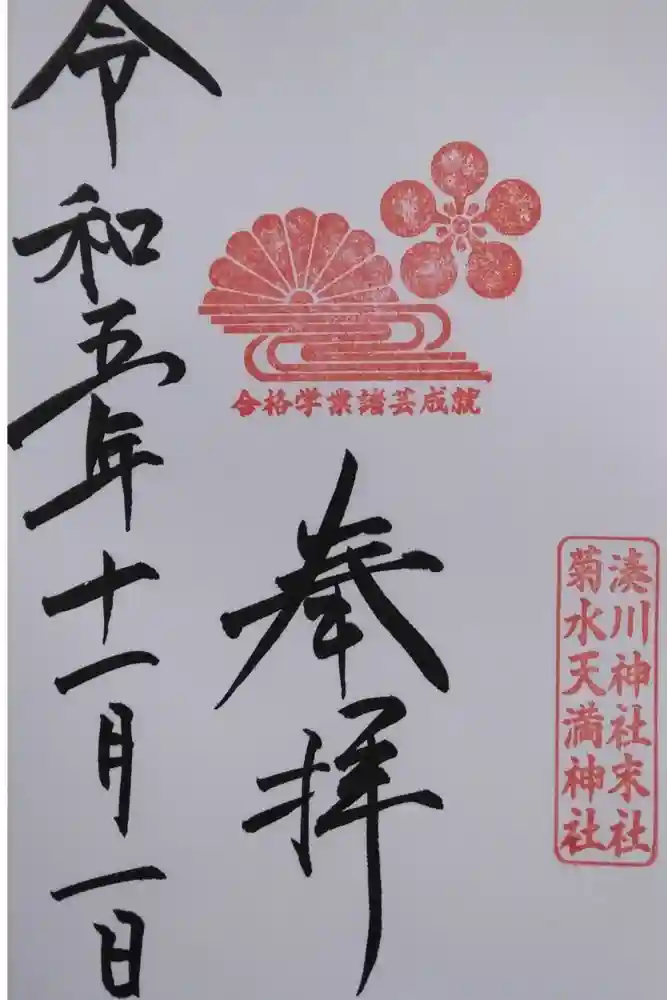 湊川神社末社
菊水天満神社
合格学業諸芸成就
奉拝
令和五年十一月一日